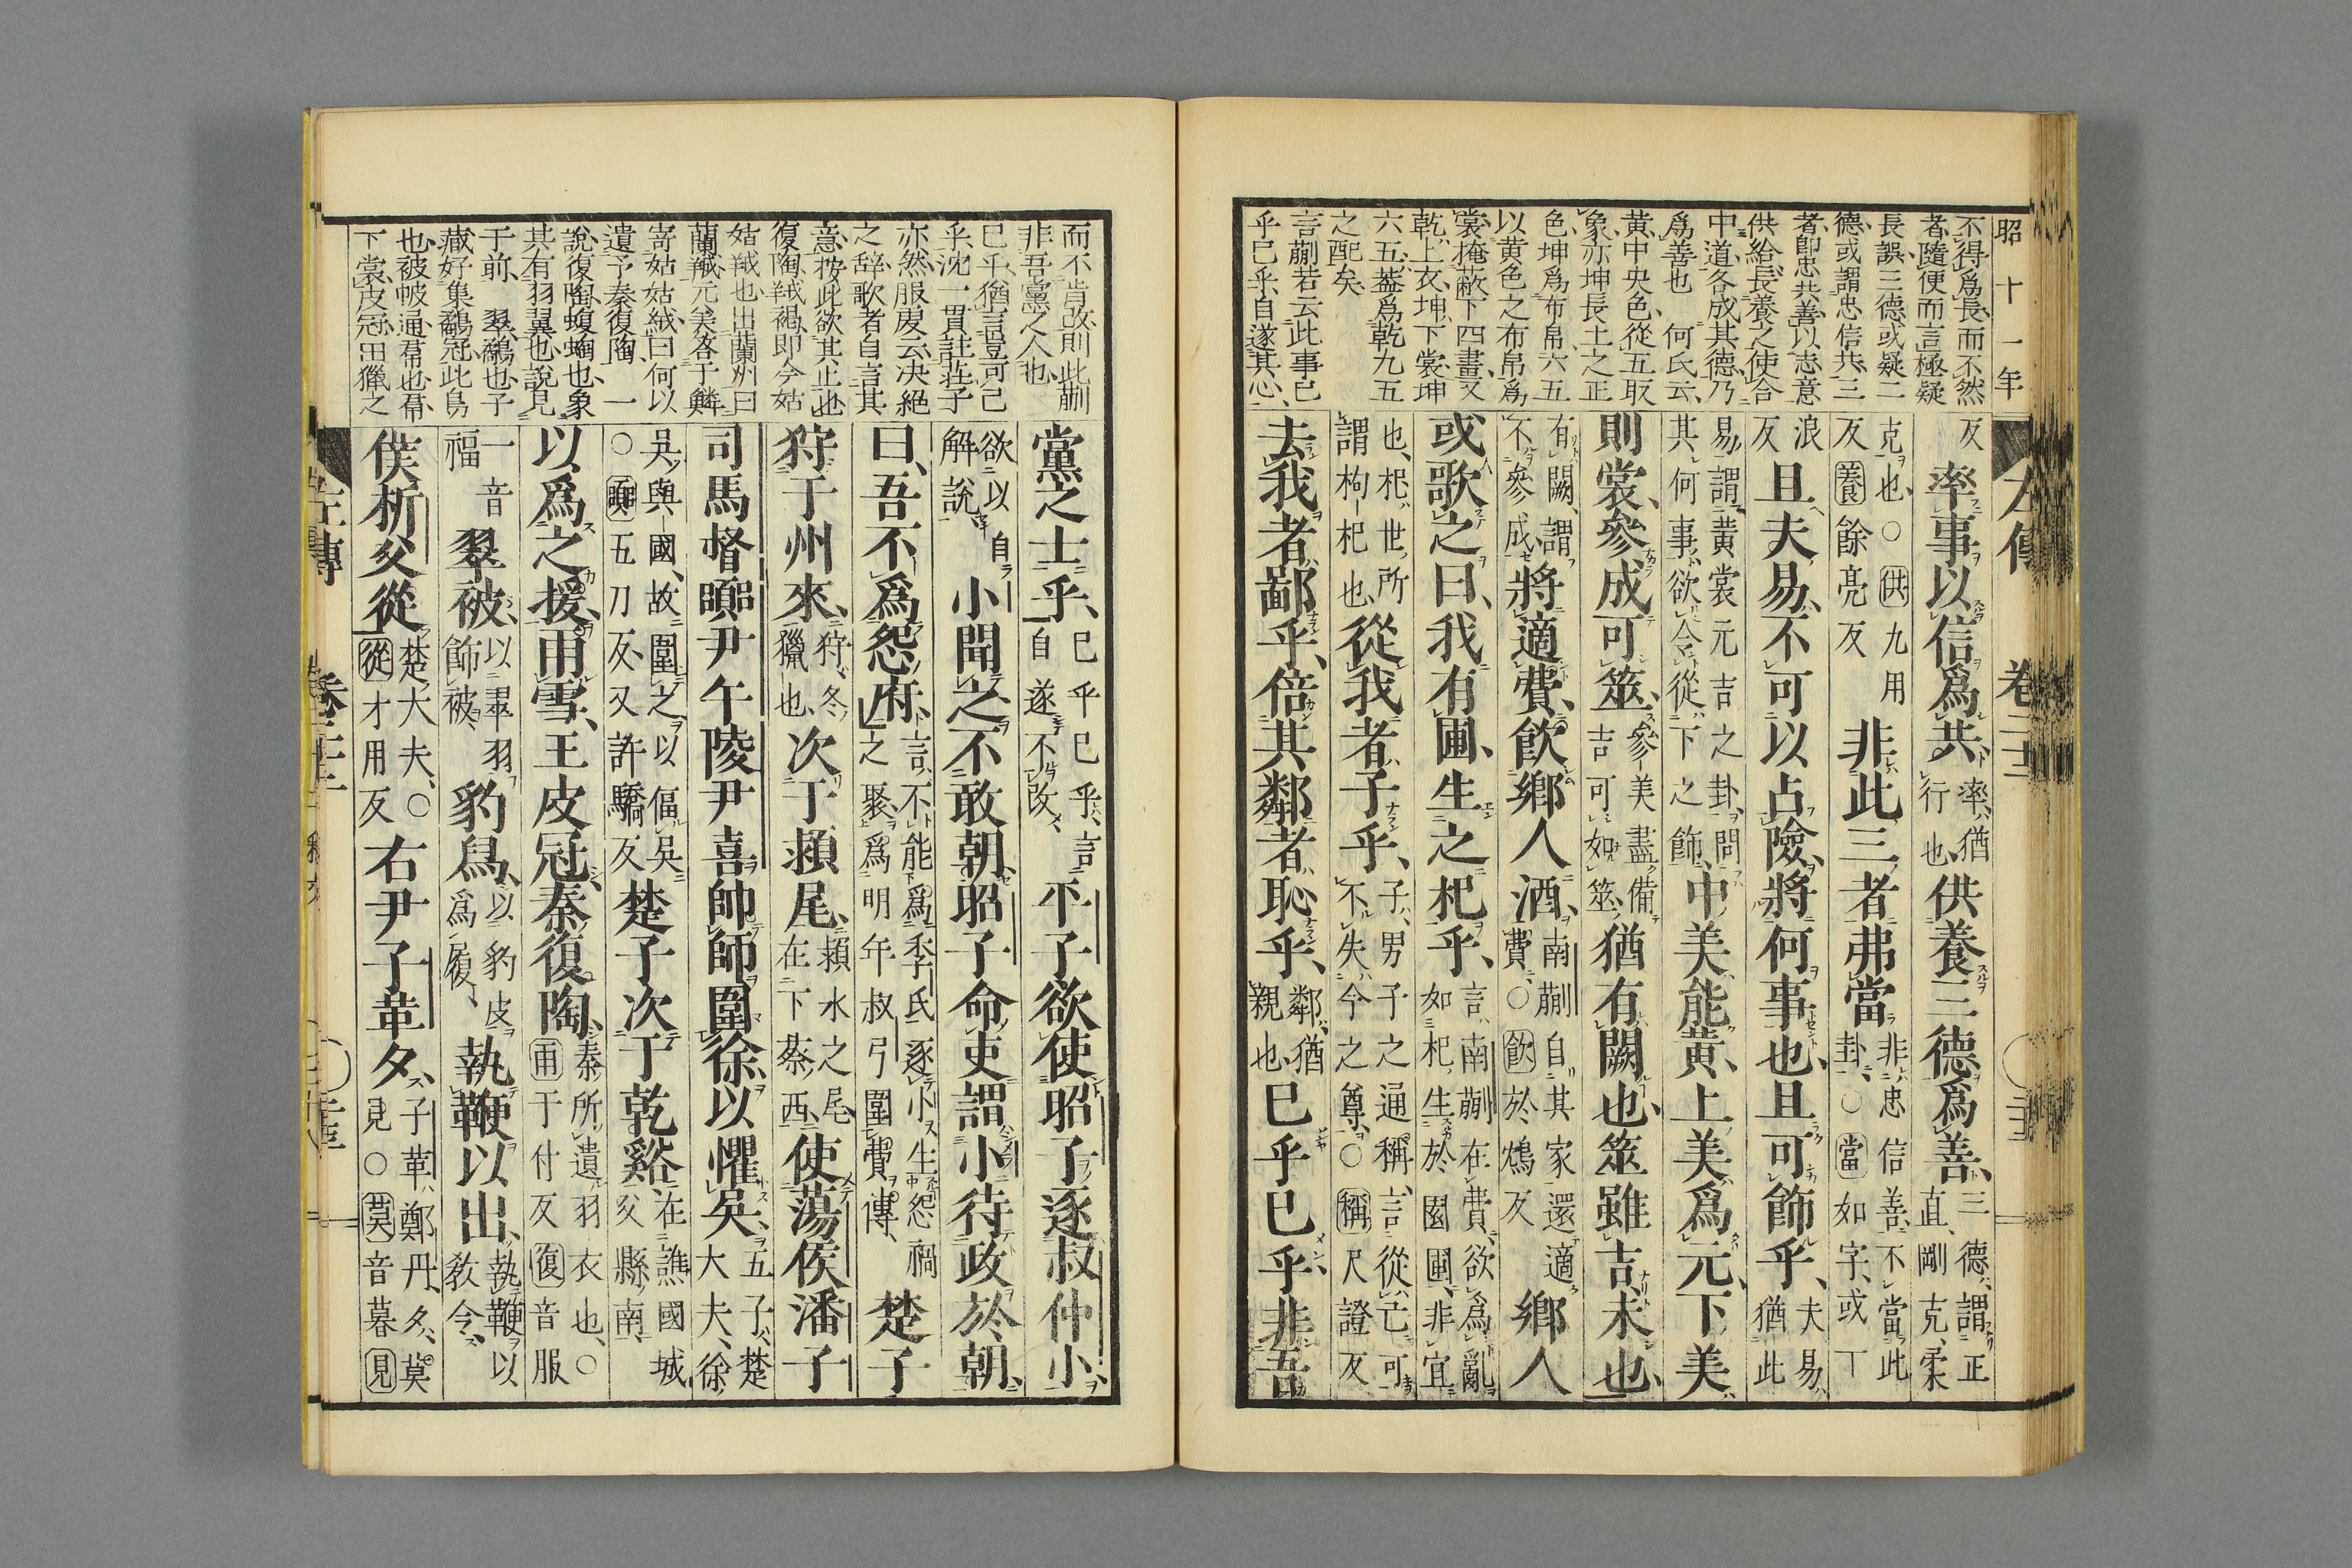 昭十一年
左傳 卷二十二
不得爲長而不然
者隨便而言極疑
長誤三德或疑二
德或謂忠信共三
者卽忠共善以志意
供給長養之使合
中道各成其德乃
爲善也 何氏云
黃中央色從五取
象亦坤長土之正
色坤爲布帛六五
以黃色之布帛爲
裳掩蔽下四畫又
乾上衣坤下裳坤
六五葢爲乾九五
之配矣
言蒯若云此事已
乎已乎自遂其心
反率事以信爲共率猶行也供養三德爲善三德謂正直剛克柔
克也○供九用反養餘亮反非此三者弗當非忠信善不當此卦○當如字或丁
浪反且夫易不可以占險將何事也且可飾乎夫易猶此
易謂黃裳元吉之卦問其何事欲令從下之飾中美能黃上美爲元下美
則裳參成可筮參美盡備吉可如筮猶有闕也筮雖吉未也
有闕謂不參成將適費飮鄉人酒南蒯自其家還適費○飮於鴆反鄉人
或歌之曰我有圃生之杞乎言南蒯在費欲爲亂如杞生於園圃非宜
也杞世所謂枸杞也從我者子乎子男子之通稱言從已可不失今之尊○稱尺證反
去我者鄙乎倍其鄰者恥乎鄰猶親也巳乎巳乎非吾
而不肯改則此蒯
非吾黨之人也
已乎猶言豈可已
乎沈一貫註莊子
亦然服虔云决絶
之辭歌者自言其
意按此欲其止也
復陶羢褐卽今姑
姑羢也出蘭州曰
蘭羢元美答于鱗
寄姑姑絨曰何以
遺予秦復陶 一
說復陶蝮蜪也象
其有羽翼也說見
于前 翠鷸也子
藏好集鷸冠此鳥
也被帔通帬也帬
下裳皮冠田獵之
黨之士乎巳乎巳乎言自遂不改平子欲使昭子逐叔仲小
欲以自解說小聞之不敢朝昭子命吏謂小待政於朝
曰吾不爲怨府言不能爲季氏逐小生怨禍之聚爲明年叔弓圍費傳楚子
狩于州來狩冬獵也次于頴尾頴水之尾在下蔡西使蕩侯潘子
司馬督嚚尹午陵尹喜帥師圍徐以懼吳五子楚大夫徐
吳與國故圍之以偪吳○嚚五刀反又許驕反楚子次于乾谿在譙國城父縣南
以爲之援雨雪王皮冠秦復陶秦所遺羽衣也○雨于付反復音服
一音福翠被以翠羽飾被豹舄以豹皮爲履執鞭以出執鞭以敎令
僕析父從楚大夫○從才用反右尹子革夕子革鄭丹夕莫見○莫音暮見
左傳 卷二十二